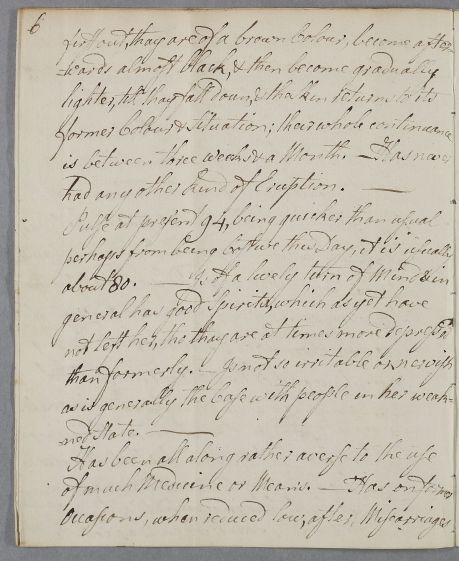 6
first out, thay are of a brown Colour, become after-
wards almost black, & then become gradually
lighter, till thay fall down, & the skin returns to its
former Colour & Situation; their whole continuance
is between three weeks & a Month. — Has never
had any other kind of Eruption. —
Pulse at present 94, being quicker than usual
perhaps from being costive this Day, it is usually
about 80. — Is of a lively turn of Mind & in
general has good Spirits, which as yet have
not left her, tho thay are at times more depress'd
than formerly. — Is not so irritable or nervish
as is generally the Case with people in her weak-
ned State. —
Has been all along rather averse to the use
of much Medicine or Means. — Has on former
Occasions, when reduced low, after Miscarriages